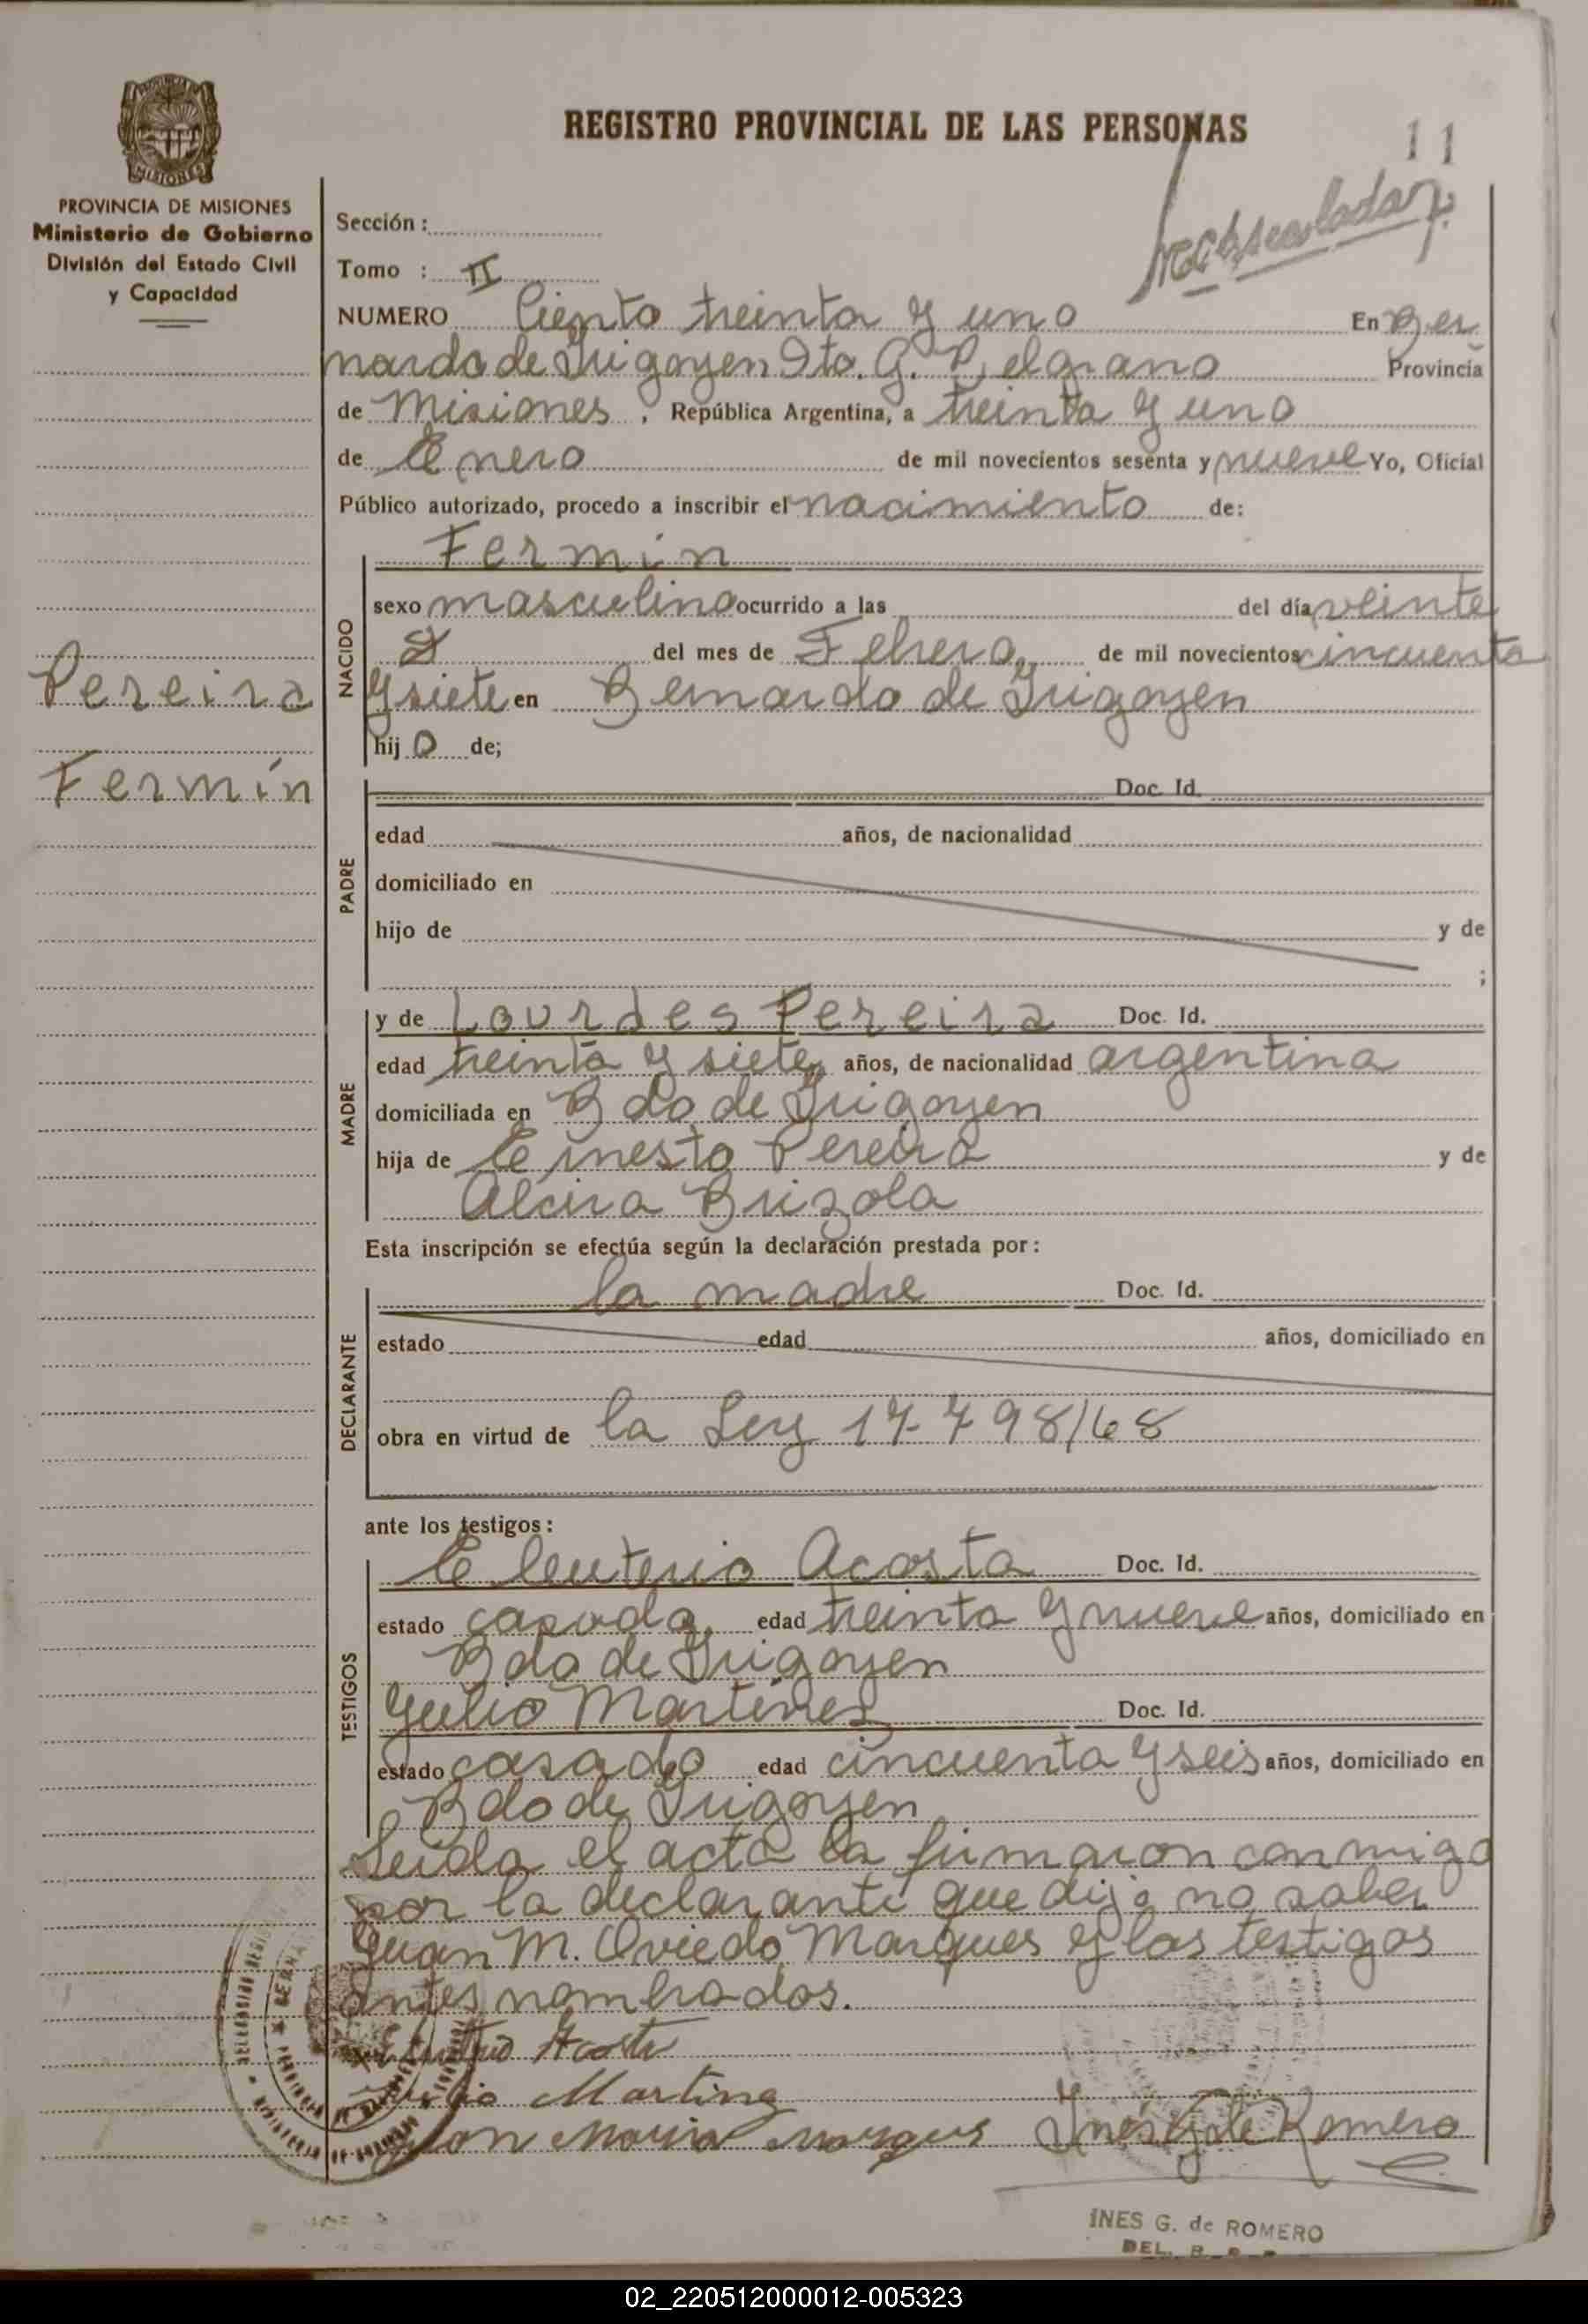 REGISTRO PROVINCIAL DE LAS PERSONAS
11
MISIONES
PROVINCIA DE MISIONES
Ministerio de Gobierno
División del Estado Civil
y Capacidad
Sección :
Tomo : II
NUMERO Ciento treinta y uno En Ber
nardo de Irigoyen Dto. G. Belgrano Provincia
de Misiones , República Argentina, a treinta y uno
de Enero de mil novecientos sesenta y nueve Yo, Oficial
Público autorizado, procedo a inscribir el nacimiento de:
Fermín
NACIDO
sexo masculino ocurrido a las del día veinte
del mes de Febrero de mil novecientos cincuenta
y siete en Bernardo de Irigoyen
hijo de;
Pereira
Fermín
PADRE
Doc. Id.
edad años, de nacionalidad
domiciliado en
hijo de y de
;
MADRE
y de Lourdes Pereira Doc. Id.
edad treinta y siete años, de nacionalidad argentina
domiciliada en Bdo de Irigoyen
hija de Ernesto Pereira y de
Alcira Brizola
Esta inscripción se efectúa según la declaración prestada por :
DECLARANTE
la madre Doc. Id.
estado edad años, domiciliado en
obra en virtud de la Ley 17798/68
ante los testigos :
TESTIGOS
Eleuterio Acosta Doc. Id.
estado casado edad treinta y nueve años, domiciliado en
Bdo de Irigoyen
Julio Martinez Doc. Id.
estado casado edad cincuenta y seis años, domiciliado en
Bdo de Irigoyen
Leida el acta la firmaron conmigo
por la declarante que dijo no saber
Juan M. Oviedo Marques y los testigos
antes nombrados.
Acosta
Martinez
Juan Maria Marques Inés G de Romero
INES G. de ROMERO
DEL.
02_220512000012-005323